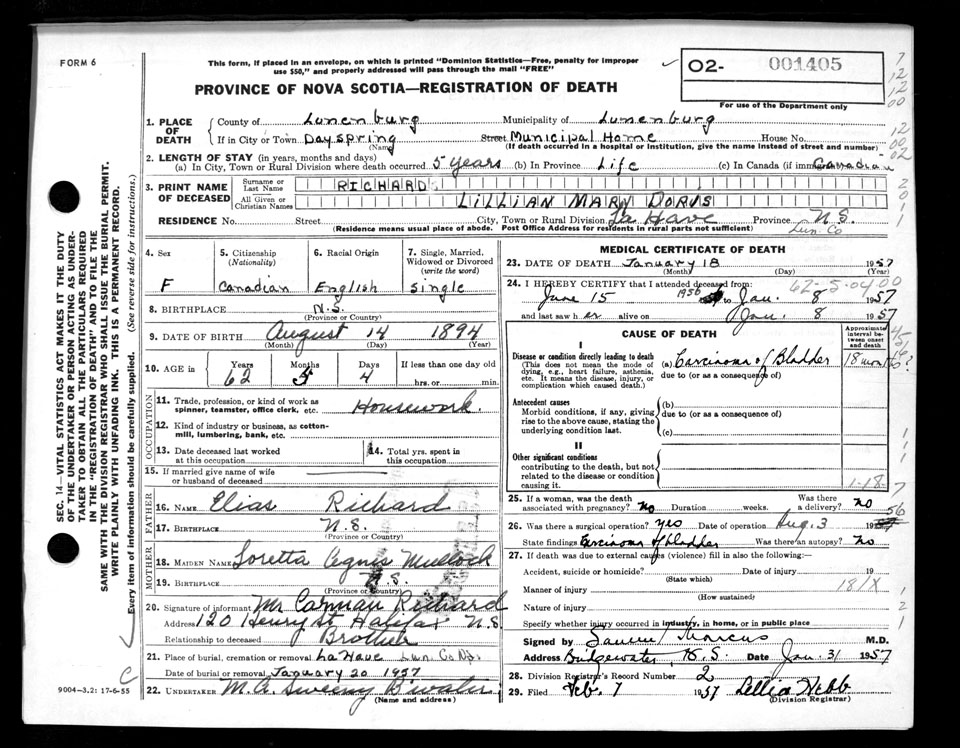 FORM 6
This form, if placed in an envelope, on which is printed "Dominion Statistics—Free, penalty for improper
use $50," and properly addressed will pass through the mail "FREE"
PROVINCE OF NOVA SCOTIA—REGISTRATION OF DEATH
O2- 001405
For use of the Department only
1. PLACE OF DEATH
County of Lunenburg Municipality of Lunenburg
If in City or Town Dayspring Street Municipal Home House No.
(Name) (If death occurred in a hospital or institution, give the name instead of street and number)
2. LENGTH OF STAY (in years, months and days)
(a) In City, Town or Rural Division where death occurred 5 years (b) In Province Life (c) In Canada (if immigrant) Canadian
3. PRINT NAME OF DECEASED
Surname or Last Name RICHARD
All Given or Christian Names LILLIAN MARY DORIS
RESIDENCE No. Street City, Town or Rural Division La Have Province N.S.
(Residence means usual place of abode. Post Office Address for residents in rural parts not sufficient) Lun. Co
4. Sex F
5. Citizenship (Nationality) Canadian
6. Racial Origin English
7. Single, Married, Widowed or Divorced (write the word) Single
8. BIRTHPLACE N.S.
(Province or Country)
9. DATE OF BIRTH August 14 1894
(Month) (Day) (Year)
10. AGE in Years 62 Months 5 Days 4 If less than one day old hrs. or min.
OCCUPATION
11. Trade, profession, or kind of work as spinner, teamster, office clerk, etc. Housework.
12. Kind of industry or business, as cotton-mill, lumbering, bank, etc.
13. Date deceased last worked at this occupation
14. Total yrs. spent in this occupation
15. If married give name of wife or husband of deceased
FATHER
16. NAME Elias Richard
17. BIRTHPLACE N.S.
(Province or Country)
MOTHER
18. MAIDEN NAME Loretta Agnes Mullock
19. BIRTHPLACE N.S.
(Province or Country)
20. Signature of informant Mr Carman Richard
Address 120 Henry St Halifax N.S.
Relationship to deceased Brother
21. Place of burial, cremation or removal La Have Lun. Co N.S.
Date of burial or removal January 20 1957
22. UNDERTAKER M.A. Sweeny B'water
(Name and address)
MEDICAL CERTIFICATE OF DEATH
23. DATE OF DEATH January 18 1957
(Month) (Day) (Year)
24. I HEREBY CERTIFY that I attended deceased from:
62-5-04-00
June 15 1956 to Jan. 8 1957
and last saw her alive on Jan. 8 1957
CAUSE OF DEATH
Approximate interval between onset and death
I
Disease or condition directly leading to death (a) Carcinoma of Bladder 18 months?
(This does not mean the mode of dying, e.g., heart failure, asthenia, etc. It means the disease, injury, or complication which caused death.)
due to (or as a consequence of)
Antecedent causes
Morbid conditions, if any, giving rise to the above cause, stating the underlying condition last.
(b)
due to (or as a consequence of)
(c)
II
Other significant conditions
contributing to the death, but not related to the disease or condition causing it.
1-18-7
25. If a woman, was the death associated with pregnancy? No Duration weeks. Was there a delivery? no
26. Was there a surgical operation? yes Date of operation Aug. 3 1956
State findings Carcinoma of bladder Was there an autopsy? No
27. If death was due to external causes (violence) fill in also the following:—
Accident, suicide or homicide? Date of injury 19
(State which)
Manner of injury 181X
(How sustained)
Nature of injury
Specify whether injury occurred in industry, in home, or in public place
Signed by Marcus M.D.
Address Bridgewater, N.S. Date Jan. 31 1957
28. Division Registrar's Record Number 2
29. Filed Feb. 7 1957 Lellia Webb
(Division Registrar)
SEC. 14—VITAL STATISTICS ACT MAKES IT THE DUTY
OF THE UNDERTAKER OR PERSON ACTING AS UNDER-
TAKER TO OBTAIN ALL THE PARTICULARS REQUIRED
IN THE "REGISTRATION OF DEATH" AND TO FILE THE
SAME WITH THE DIVISION REGISTRAR WHO SHALL ISSUE THE BURIAL PERMIT.
WRITE PLAINLY WITH UNFADING INK. THIS IS A PERMANENT RECORD.
Every item of information should be carefully supplied. (See reverse side for instructions.)
9004-3.2: 17-6-55